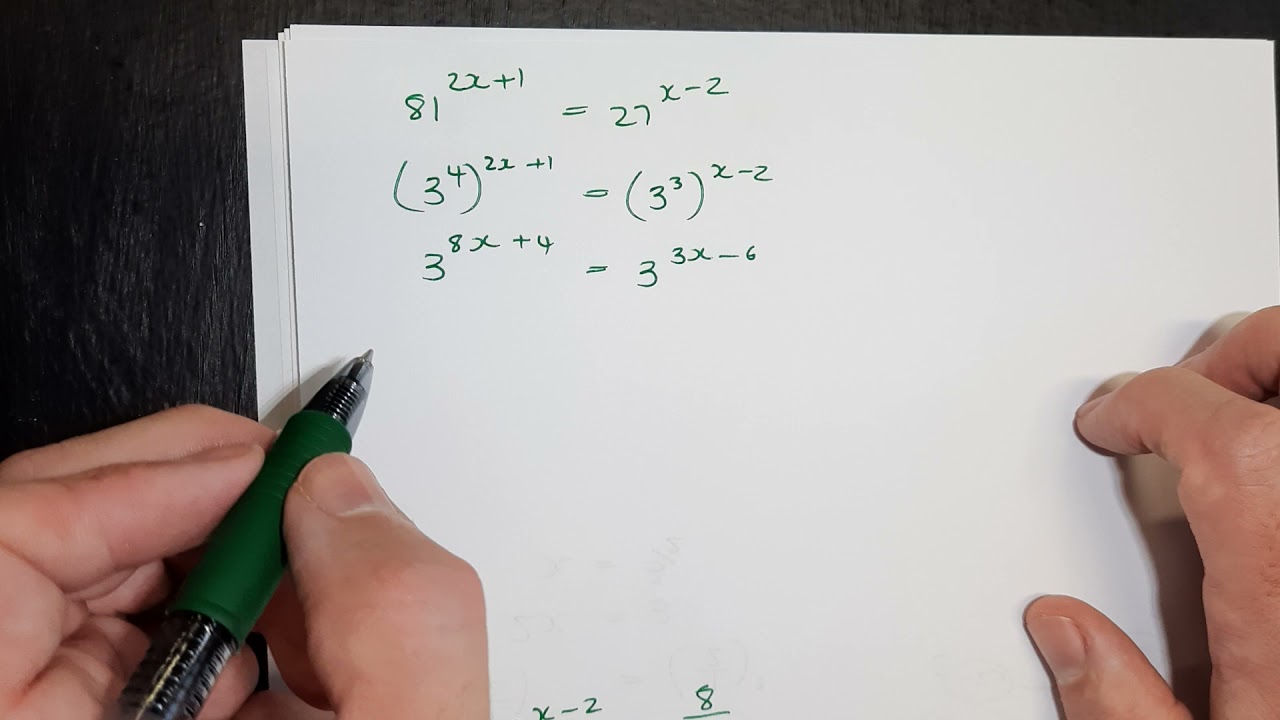 81^(2x+1) = 27^(x-2)
(3^4)^(2x+1) = (3^3)^(x-2)
3^(8x+4) = 3^(3x-6)
x-2 8